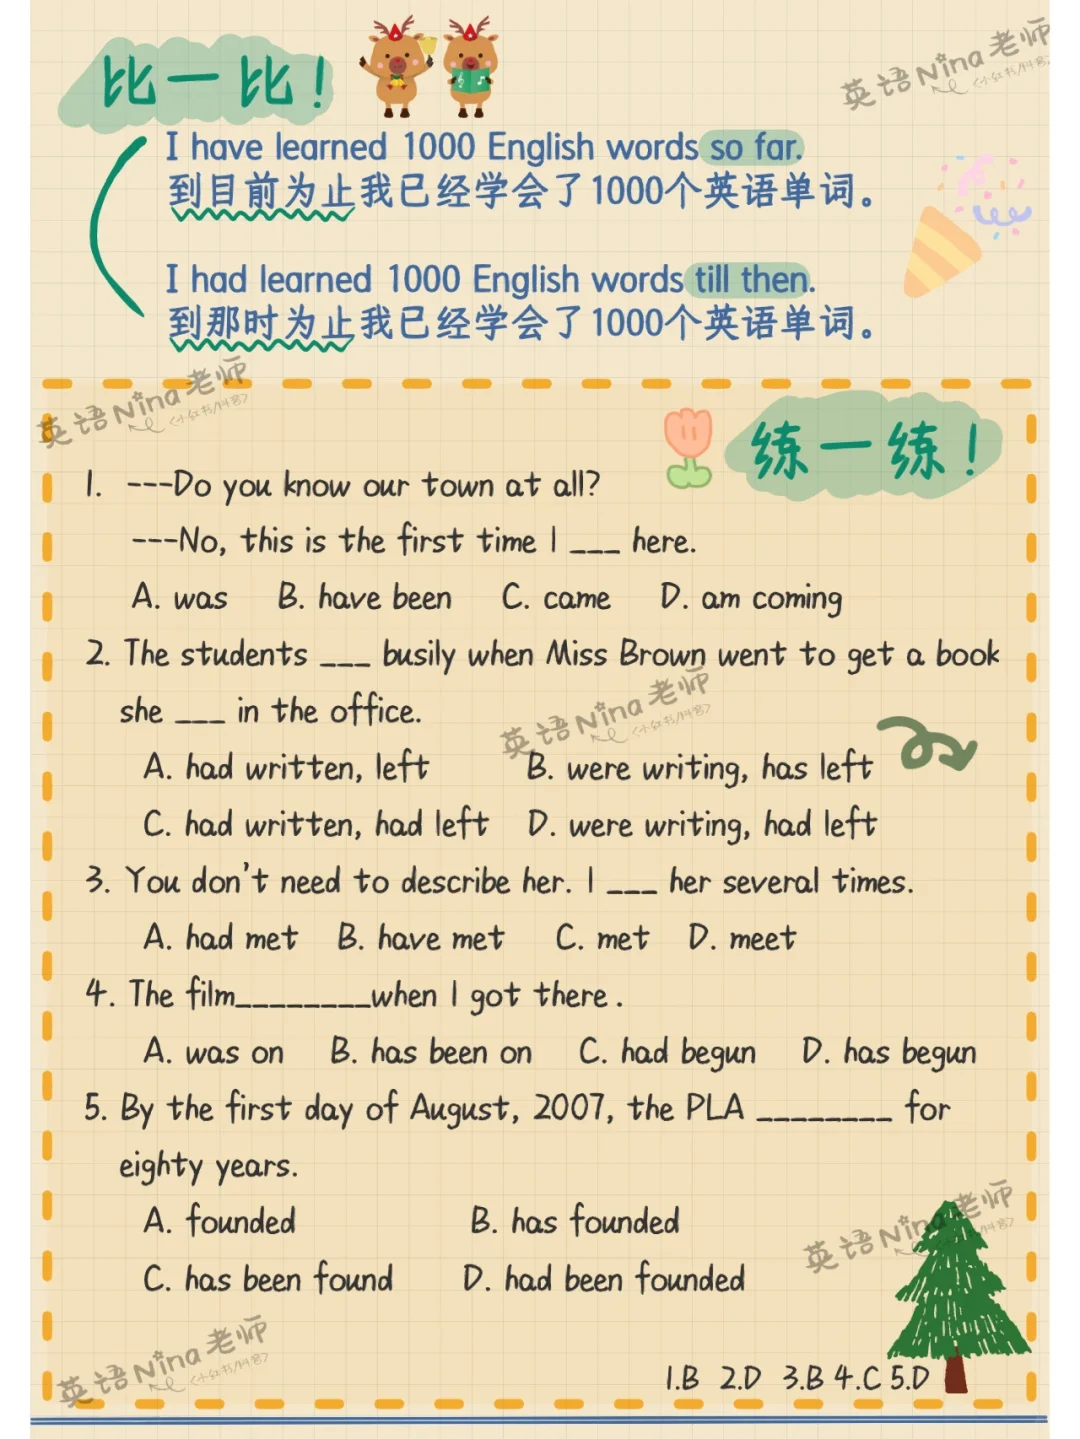 比一比!
英语Nina老师
<小红书/抖音>
I have learned 1000 English words so far.
到目前为止我已经学会了1000个英语单词。
I had learned 1000 English words till then.
到那时为止我已经学会了1000个英语单词。
英语Nina老师
<小红书/抖音>
练一练!
1. ---Do you know our town at all?
---No, this is the first time I ___ here.
A. was B. have been C. came D. am coming
2. The students ___ busily when Miss Brown went to get a book
she ___ in the office.
英语Nina老师
<小红书/抖音>
A. had written, left B. were writing, has left
C. had written, had left D. were writing, had left
3. You don't need to describe her. I ___ her several times.
A. had met B. have met C. met D. meet
4. The film________when I got there.
A. was on B. has been on C. had begun D. has begun
5. By the first day of August, 2007, the PLA ________ for
eighty years.
A. founded B. has founded
英语Nina老师
<小红书/抖音>
C. has been found D. had been founded
英语Nina老师
<小红书/抖音>
1.B 2.D 3.B 4.C 5.D